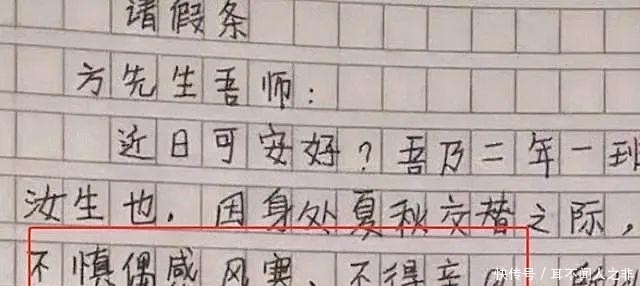 请假条
方先生吾师：
近日可安好？吾乃二年一班
汝生也，因身处夏秋交替之际，
不慎偶感风寒，不得亲
快传号／耳不闻人之非